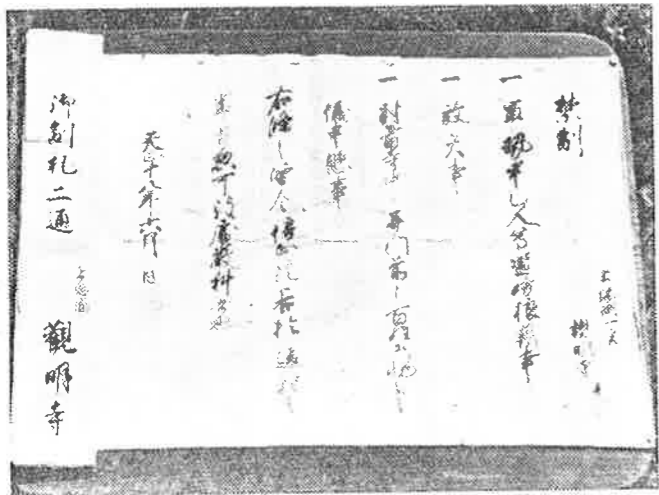 観明寺
禁制
一軍勢甲乙人等濫妨狼藉事
一放火事
一対寺家并門前之百姓等
儀申懸事
右條々堅令停止訖若於違犯
者忽可被處嚴科者也
天正十八年六月日
御制札二通
觀明寺